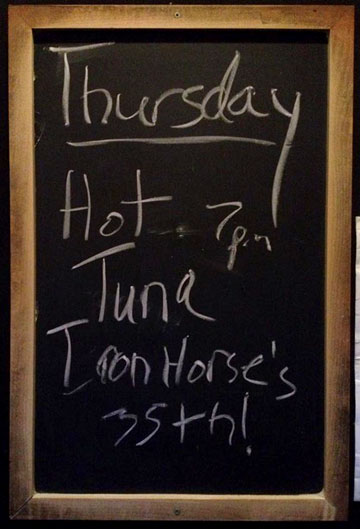 Thursday
Hot 7pm
Tuna
Iron Horse's
35th!